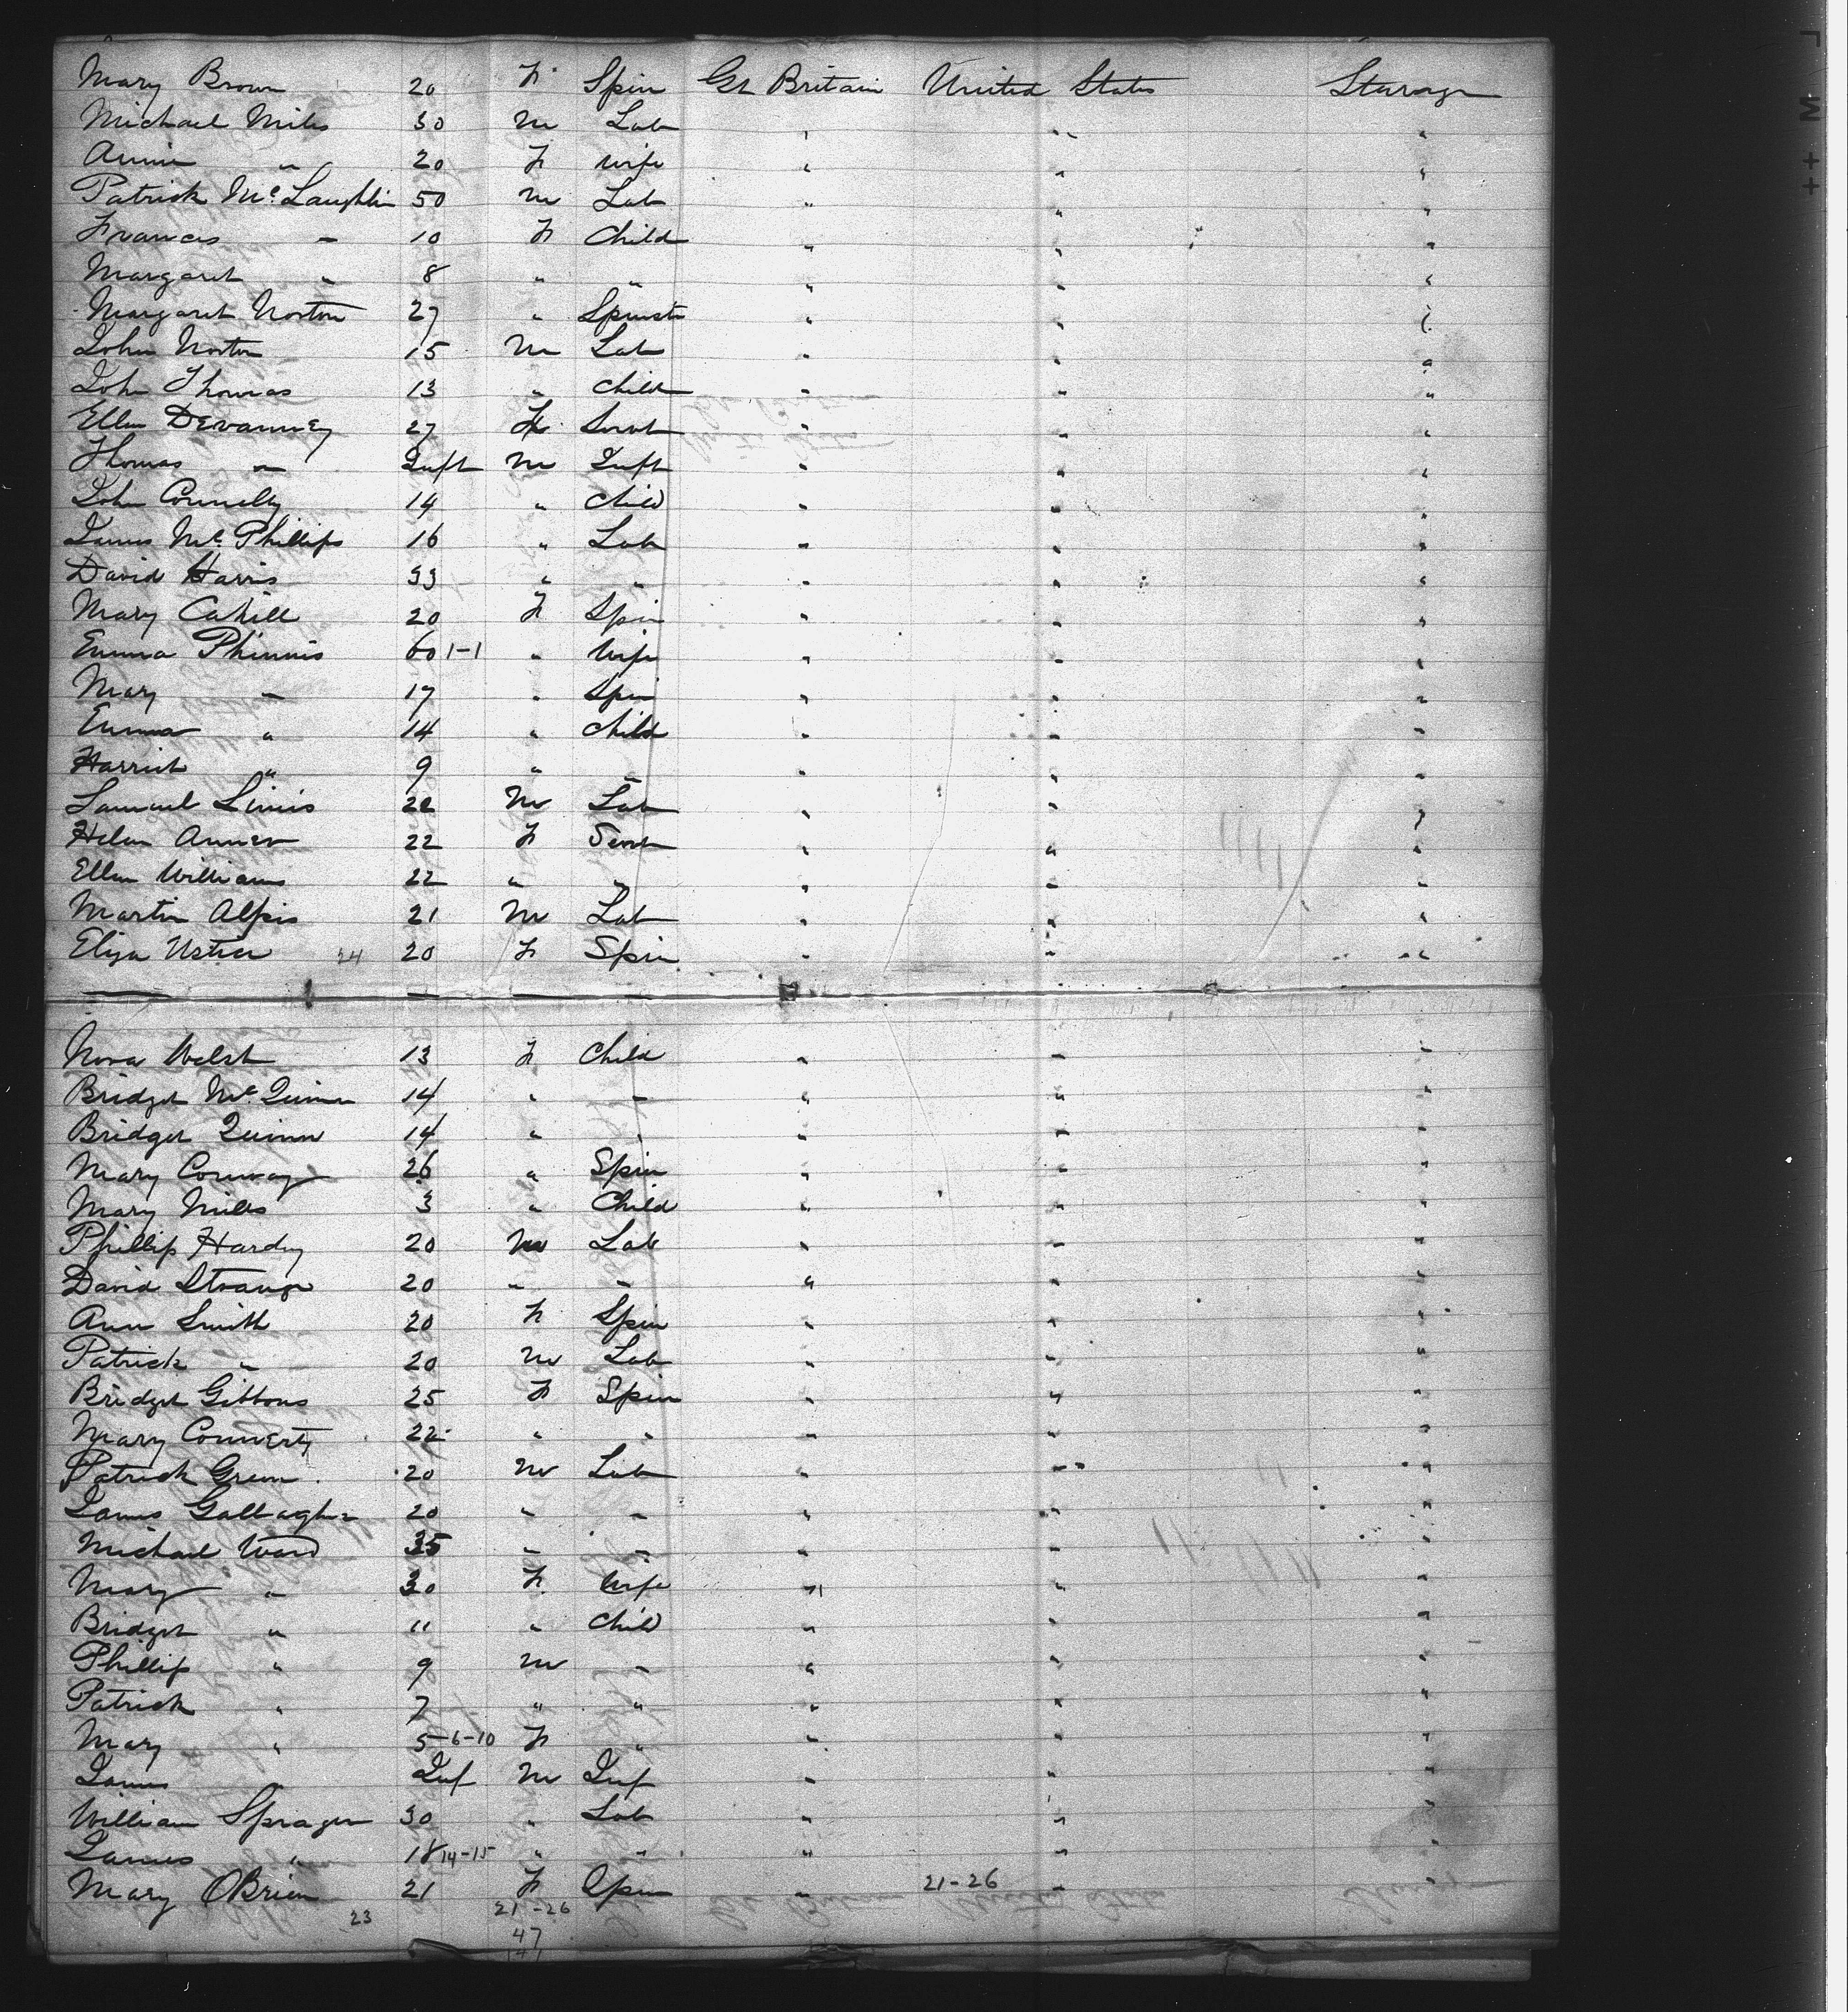 Mary Brown 20 F Spin Gt Britain United States Steerage
Michael Miles 30 M Lab " " "
Annie " 20 F Wife " " "
Patrick Mc Laughlin 50 M Lab " " "
Frances " 10 F Child " " "
Margaret " 8 " " " " "
Margaret Norton 27 " Spinst " " "
John Norton 15 M Lab " " "
John Thomas 13 " Child " " "
Ellen Devanney 27 F Servt " " "
Thomas " Inft M Inft " " "
John Connelly 14 " Child " " "
James Mc Phillips 16 " Lab " " "
David Harris 33 " " " " "
Mary Cahill 20 F Spin " " "
Emma Phinnis 60 1-1 " Wife " " "
Mary " 17 " Spin " " "
Emma " 14 " Child " " "
Harriet " 9 " " " " "
Samuel 22 M Lab " " "
Helen 22 F Servt " " "
Ellen Williams 22 " " " " "
Martin 21 M Lab " " "
Eliza 24 20 F Spin " " "
Nora Welsh 13 F Child " " "
Bridget Mc Quinn 14 " " " " "
Bridget Quinn 14 " " " " "
Mary Conway 26 " Spin " " "
Mary Miles 3 " Child " " "
Phillip Hardy 20 M Lab " " "
David Strange 20 " " " " "
Ann Smith 20 F Spin " " "
Patrick " 20 M Lab " " "
Bridget Gibbons 25 F Spin " " "
Mary Connerty 22 " " " " "
Patrick Green 20 M Lab " " "
James Gallagher 20 " " " " "
Michael Ward 35 " " " " "
Mary " 30 F Wife " " "
Bridget " 11 " Child " " "
Phillip " 9 M " " " "
Patrick " 7 " " " " "
Mary " 5 6-10 F " " " "
James " Inf M Inf " " "
William Sprager 30 " Lab " " "
James " 18 14-15 " " " " "
Mary OBrien 21 F Spin " 21-26 " "
23 21-26
47